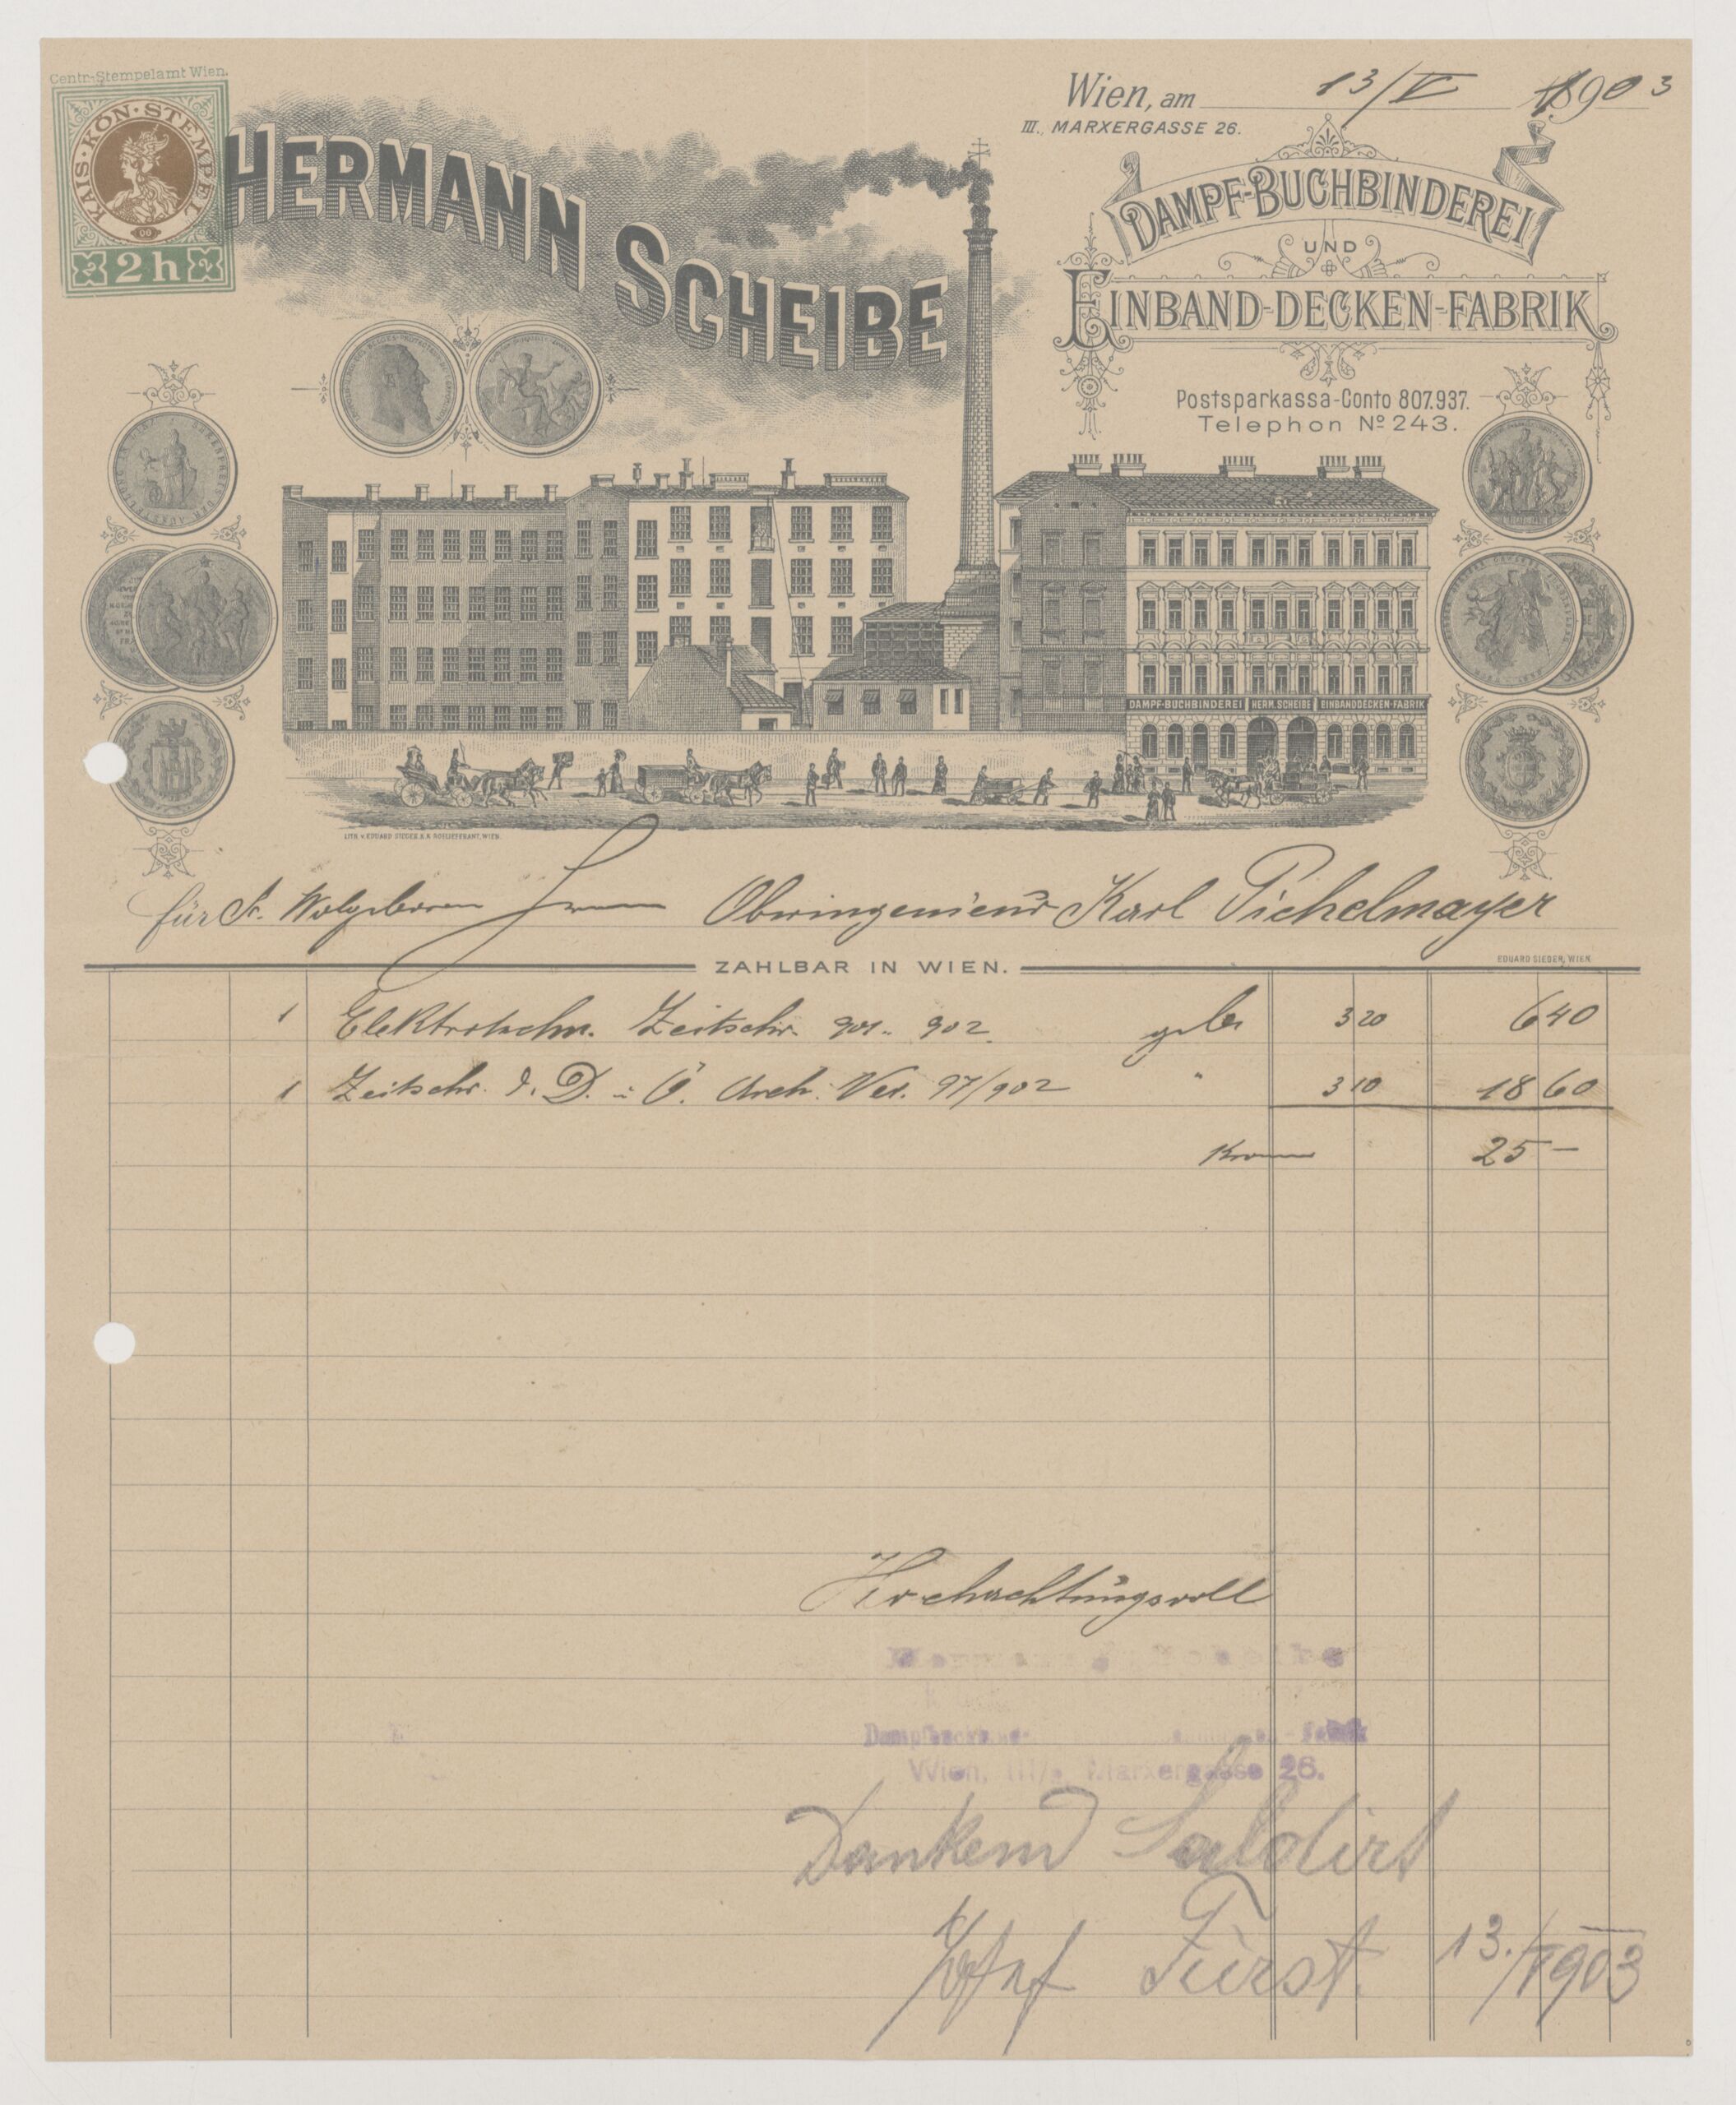 Centr.-Stempelamt Wien.
KAIS·KÖN·STEMPEL
2 h
HERMANN SCHEIBE
Wien, am 13/V 1903
III., MARXERGASSE 26.
DAMPF-BUCHBINDEREI
UND
EINBAND-DECKEN-FABRIK
Postsparkassa-Conto 807.937.
Telephon Nº 243.
DAMPF-BUCHBINDEREI HERM. SCHEIBE EINBANDDECKEN-FABRIK
LITH. v. EDUARD SIEGER K.K. HOFLIEFERANT, WIEN.
für Sr. Wolgeboren Herrn Oberingenieur Karl Pichelmayer
ZAHLBAR IN WIEN.
EDUARD SIEGER, WIEN
1 Elektrotechn. Zeitschr. 901.. 902. geb 3 20 6 40
1 Zeitschr. d. D. u Ö. Arch. Ver. 97/902 " 3 10 18 60
Kronen 25 —
Hochachtungsvoll
Wien, III/ Marxergasse 26.
Dankend Saldirt
Josef Fürst. 13./V 903